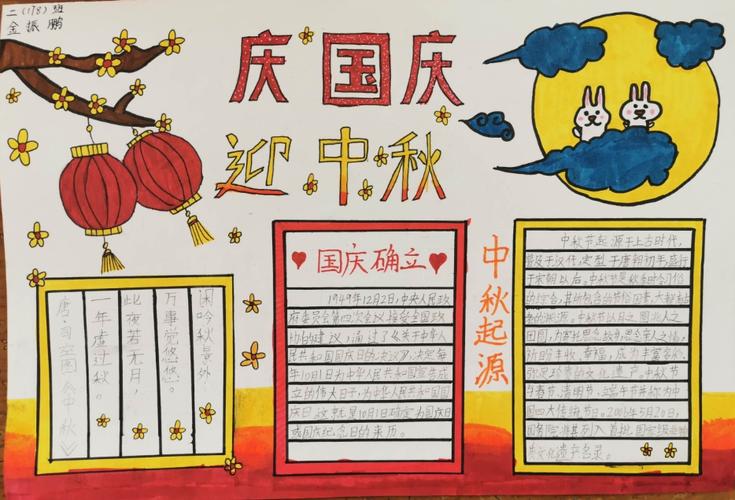 二(178)班
金振鹏
庆国庆
迎中秋
闲吟秋景外,
万事觉悠悠。
此夜若无月,
一年虚过秋。
唐·司空图《中秋》
国庆确立
1949年12月2日,中央人民政
府委员会第四次会议接受全国政
协的建议,通过了《关于中华人
民共和国国庆日的决议》,决定每
年10月1日为中华人民共和国宣告成
立的伟大日子,为中华人民共和国国
庆日。这就是10月1日确定为国庆日
或国庆纪念日的来历。
中秋起源
中秋节起源于上古时代,
普及于汉代,定型于唐朝初年,盛行
于宋朝以后。中秋节是秋季时令习俗
的综合,其所包含的节俗因素,大都有古
老的渊源。中秋节以月之圆兆人之
团圆,为寄托思念故乡,思念亲人之情,
祈盼丰收、幸福,成为丰富多彩、
弥足珍贵的文化遗产。中秋节
与春节、清明节、端午节并称为中
国四大传统节日。2006年5月20日,
国务院将其列入首批国家级非物
质文化遗产名录。